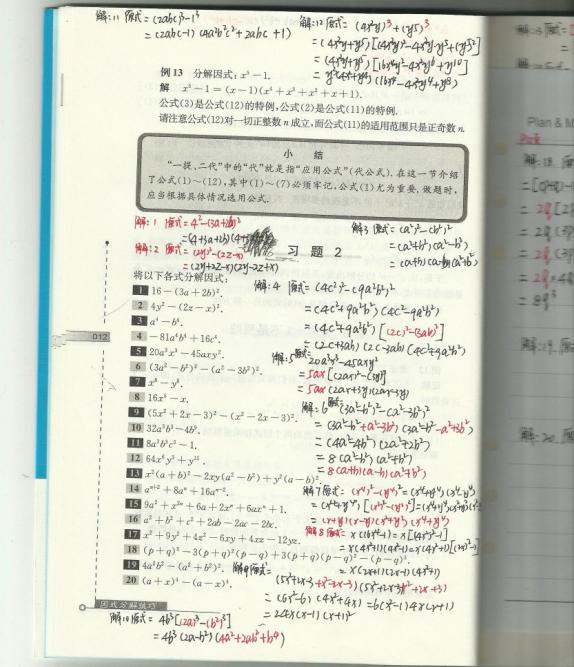 解:11 原式=(2abc)³-1³
=(2abc-1)(4a²b²c²+2abc+1)
解:12 原式=(4x²y)³+(y⁵)³
=(4x²y+y⁵)[(4x²y)²-4x²y·y⁵+(y⁵)²]
=(4x²y+y⁵)[16x⁴y²-4x²y⁶+y¹⁰]
=y³(4x²+y⁴)(16x⁴-4x²y⁴+y⁸)
例 13 分解因式:x⁵-1.
解 x⁵-1=(x-1)(x⁴+x³+x²+x+1).
公式(3)是公式(12)的特例,公式(2)是公式(11)的特例.
请注意公式(12)对一切正整数 n 成立,而公式(11)的适用范围只是正奇数 n.
小 结
“一提、二代”中的“代”就是指“应用公式”(代公式).在这一节介绍
了公式(1)~(12),其中(1)~(7)必须牢记,公式(1)尤为重要.做题时,
应当根据具体情况选用公式.
解:1 原式=4²-(3a+2b)²
=(4+3a+2b)(4
解:2 原式=(2y)²-(2z-x)²
=(2y+2z-x)(2y-2z+x)
解3 原式=(a²)²-(b²)²
=(a²+b²)(a²-b²)
=(a+b)(a-b)(a²+b²)
习 题 2
将以下各式分解因式:
1 16-(3a+2b)².
2 4y²-(2z-x)².
3 a⁴-b⁴.
4 -81a⁴b⁴+16c⁴.
5 20a³x³-45axy².
6 (3a²-b²)²-(a²-3b²)².
7 x⁸-y⁸.
8 16x⁵-x.
9 (5x²+2x-3)²-(x²-2x-3)².
10 32a³b³-4b⁹.
11 8a³b³c³-1.
12 64x⁶y³+y¹⁵.
13 x²(a+b)²-2xy(a²-b²)+y²(a-b)².
14 aⁿ⁺²+8aⁿ+16aⁿ⁻².
15 9a²+x²ⁿ+6a+2xⁿ+6axⁿ+1.
16 a²+b²+c²+2ab-2ac-2bc.
17 x²+9y²+4z²-6xy+4xz-12yz.
18 (p+q)³-3(p+q)²(p-q)+3(p+q)(p-q)²-(p-q)³.
19 4a²b²-(a²+b²)².
20 (a+x)⁴-(a-x)⁴.
012
解:4 原式=(4c²)²-(9a²b²)²
=(4c²+9a²b²)(4c²-9a²b²)
=(4c²+9a²b²)[(2c)²-(3ab)²]
=(2c+3ab)(2c-3ab)(4c²+9a²b²)
解:5 原式=20a³x³-45axy²
=5ax[(2ax)²-(3y)²]
=5ax(2ax+3y)(2ax-3y)
解:6 原式=(3a²-b²)²-(a²-3b²)²
=(3a²-b²+a²-3b²)(3a²-b²-a²+3b²)
=(4a²-4b²)(2a²+2b²)
=8(a²-b²)(a²+b²)
=8(a+b)(a-b)(a²+b²)
解7 原式=(x⁴)²-(y⁴)²=(x⁴+y⁴)(x⁴-y⁴)
=(x+y)(x-y)(x²+y²)(x⁴+y⁴)
解8 原式=x(16x⁴-1)=x[(4x²)²-1]
=x(4x²+1)(4x²-1)=x(4x²+1)[(2x)²-1]
=x(2x+1)(2x-1)(4x²+1)
解9 原式=
(5x²+2x-3+x²-2x-3)(5x²+2x-3-x²+2x+3)
=(6x²-6)(4x²+4x)=6(x²-1)4x(x+1)
=24x(x-1)(x+1)²
因式分解技巧
解10 原式=4b³[(2a)³-(b²)³]
=4b³(2a-b²)(4a²+2ab²+b⁴)